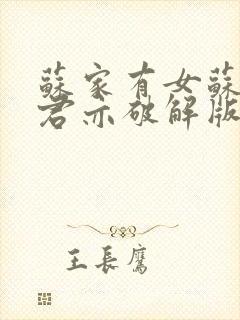 蘇家有女蘇
君亦破解版
王長鷹